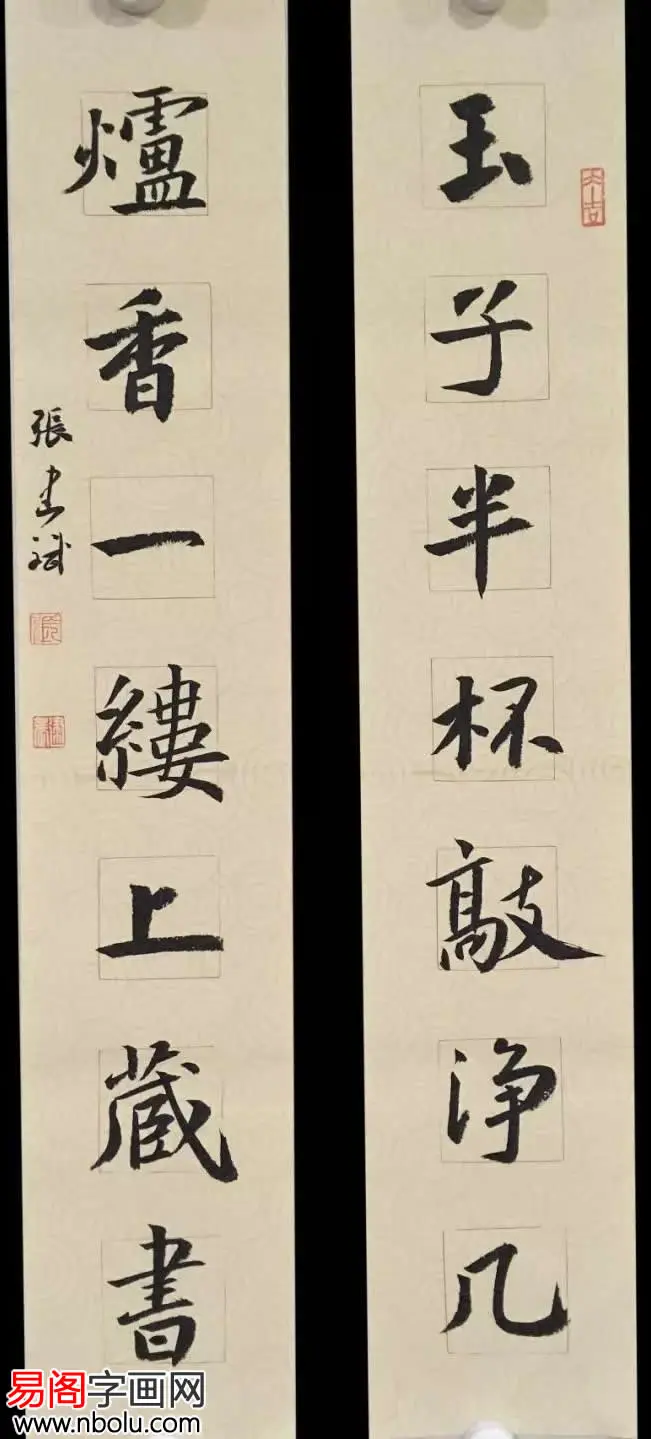 玉子半杯敲浄几
爐香一縷上蔵書
張書斌
易阁字画网
www.nbolu.com